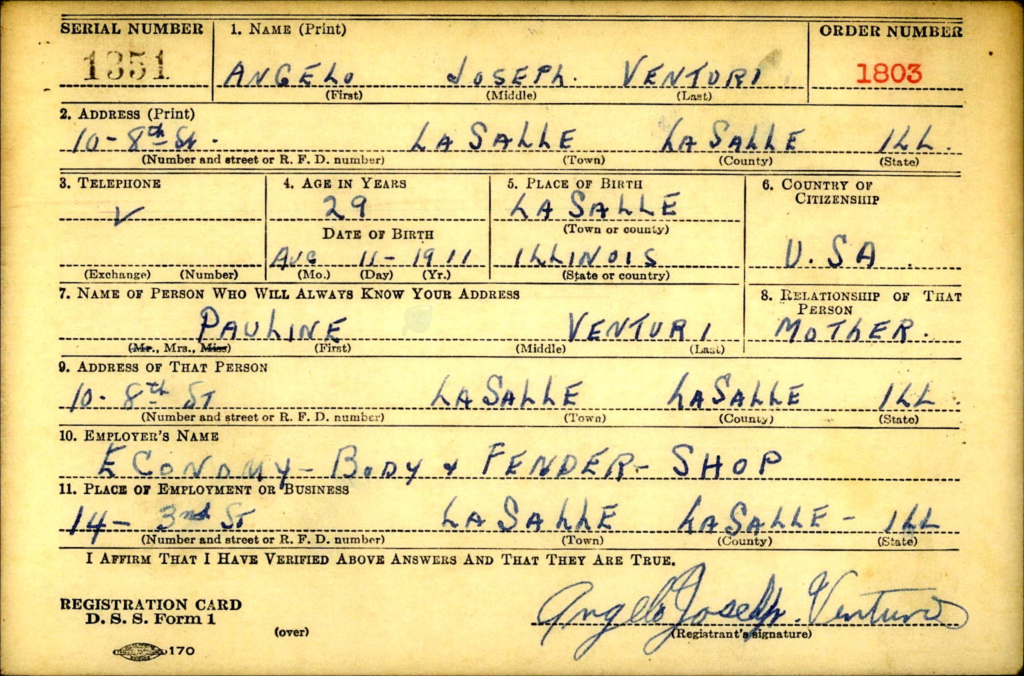 SERIAL NUMBER 1. NAME (Print) ORDER NUMBER
1351 ANGELO JOSEPH. VENTURI 1803
(First) (Middle) (Last)
2. ADDRESS (Print)
10 - 8th St. LASALLE LASALLE ILL.
(Number and street or R. F. D. number) (Town) (County) (State)
3. TELEPHONE 4. AGE IN YEARS 5. PLACE OF BIRTH 6. COUNTRY OF CITIZENSHIP
29 LASALLE
DATE OF BIRTH (Town or county)
AUG 11 - 1911 ILLINOIS U.SA.
(Exchange) (Number) (Mo.) (Day) (Yr.) (State or country)
7. NAME OF PERSON WHO WILL ALWAYS KNOW YOUR ADDRESS 8. RELATIONSHIP OF THAT PERSON
PAULINE VENTURI MOTHER.
(Mr., Mrs., Miss) (First) (Middle) (Last)
9. ADDRESS OF THAT PERSON
10 - 8th ST LASALLE LASALLE ILL
(Number and street or R. F. D. number) (Town) (County) (State)
10. EMPLOYER'S NAME
ECONOMY - BODY & FENDER - SHOP
11. PLACE OF EMPLOYMENT OR BUSINESS
14 - 3nd ST LASALLE LASALLE - ILL
(Number and street or R. F. D. number) (Town) (County) (State)
I AFFIRM THAT I HAVE VERIFIED ABOVE ANSWERS AND THAT THEY ARE TRUE.
REGISTRATION CARD Angelo Joseph. Venturi
D. S. S. Form 1
(over) (Registrant's signature)
170